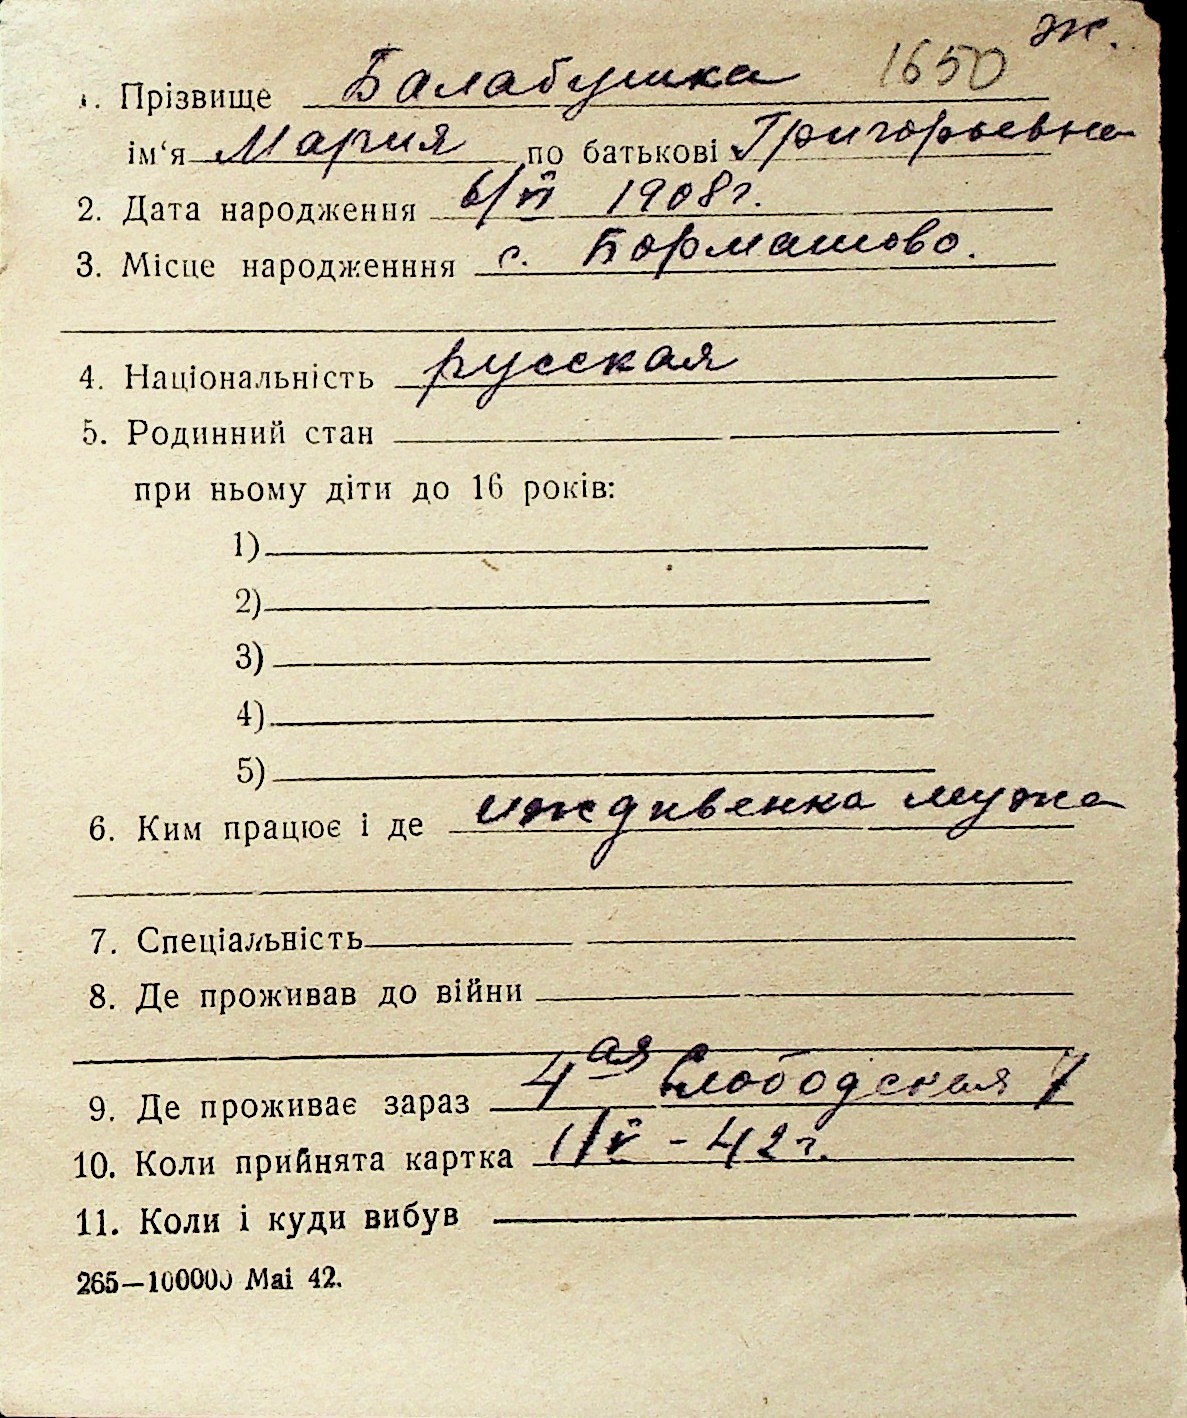 ж.
1650
1. Прізвище Балабушка
ім‘я Мария по батькові Григорьевна
2. Дата народження 6/VI 1908г.
3. Місце народженння с. Бормашово.
4. Національність русская
5. Родинний стан
при ньому діти до 16 років:
1)
2)
3)
4)
5)
6. Ким працює і де иждивенка мужа
7. Спеціальність
8. Де проживав до війни
9. Де проживає зараз 4ая Слободская 7
10. Коли прийнята картка 1/V - 42г.
11. Коли і куди вибув
265—100000 Mai 42.